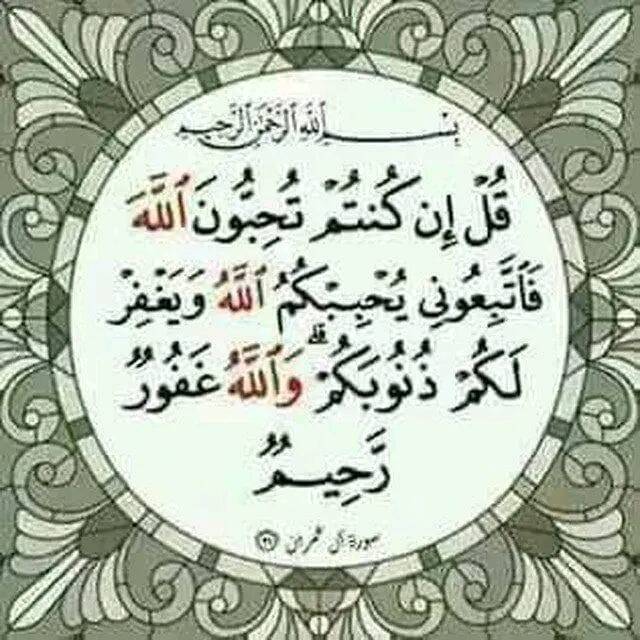 بِسْمِ ٱللَّهِ ٱلرَّحْمَٰنِ ٱلرَّحِيمِ
قُلْ إِن كُنتُمْ تُحِبُّونَ ٱللَّهَ
فَٱتَّبِعُونِي يُحْبِبْكُمُ ٱللَّهُ وَيَغْفِرْ
لَكُمْ ذُنُوبَكُمْ ۗ وَٱللَّهُ غَفُورٌ
رَّحِيمٌ
سورة آل عمران ٣١